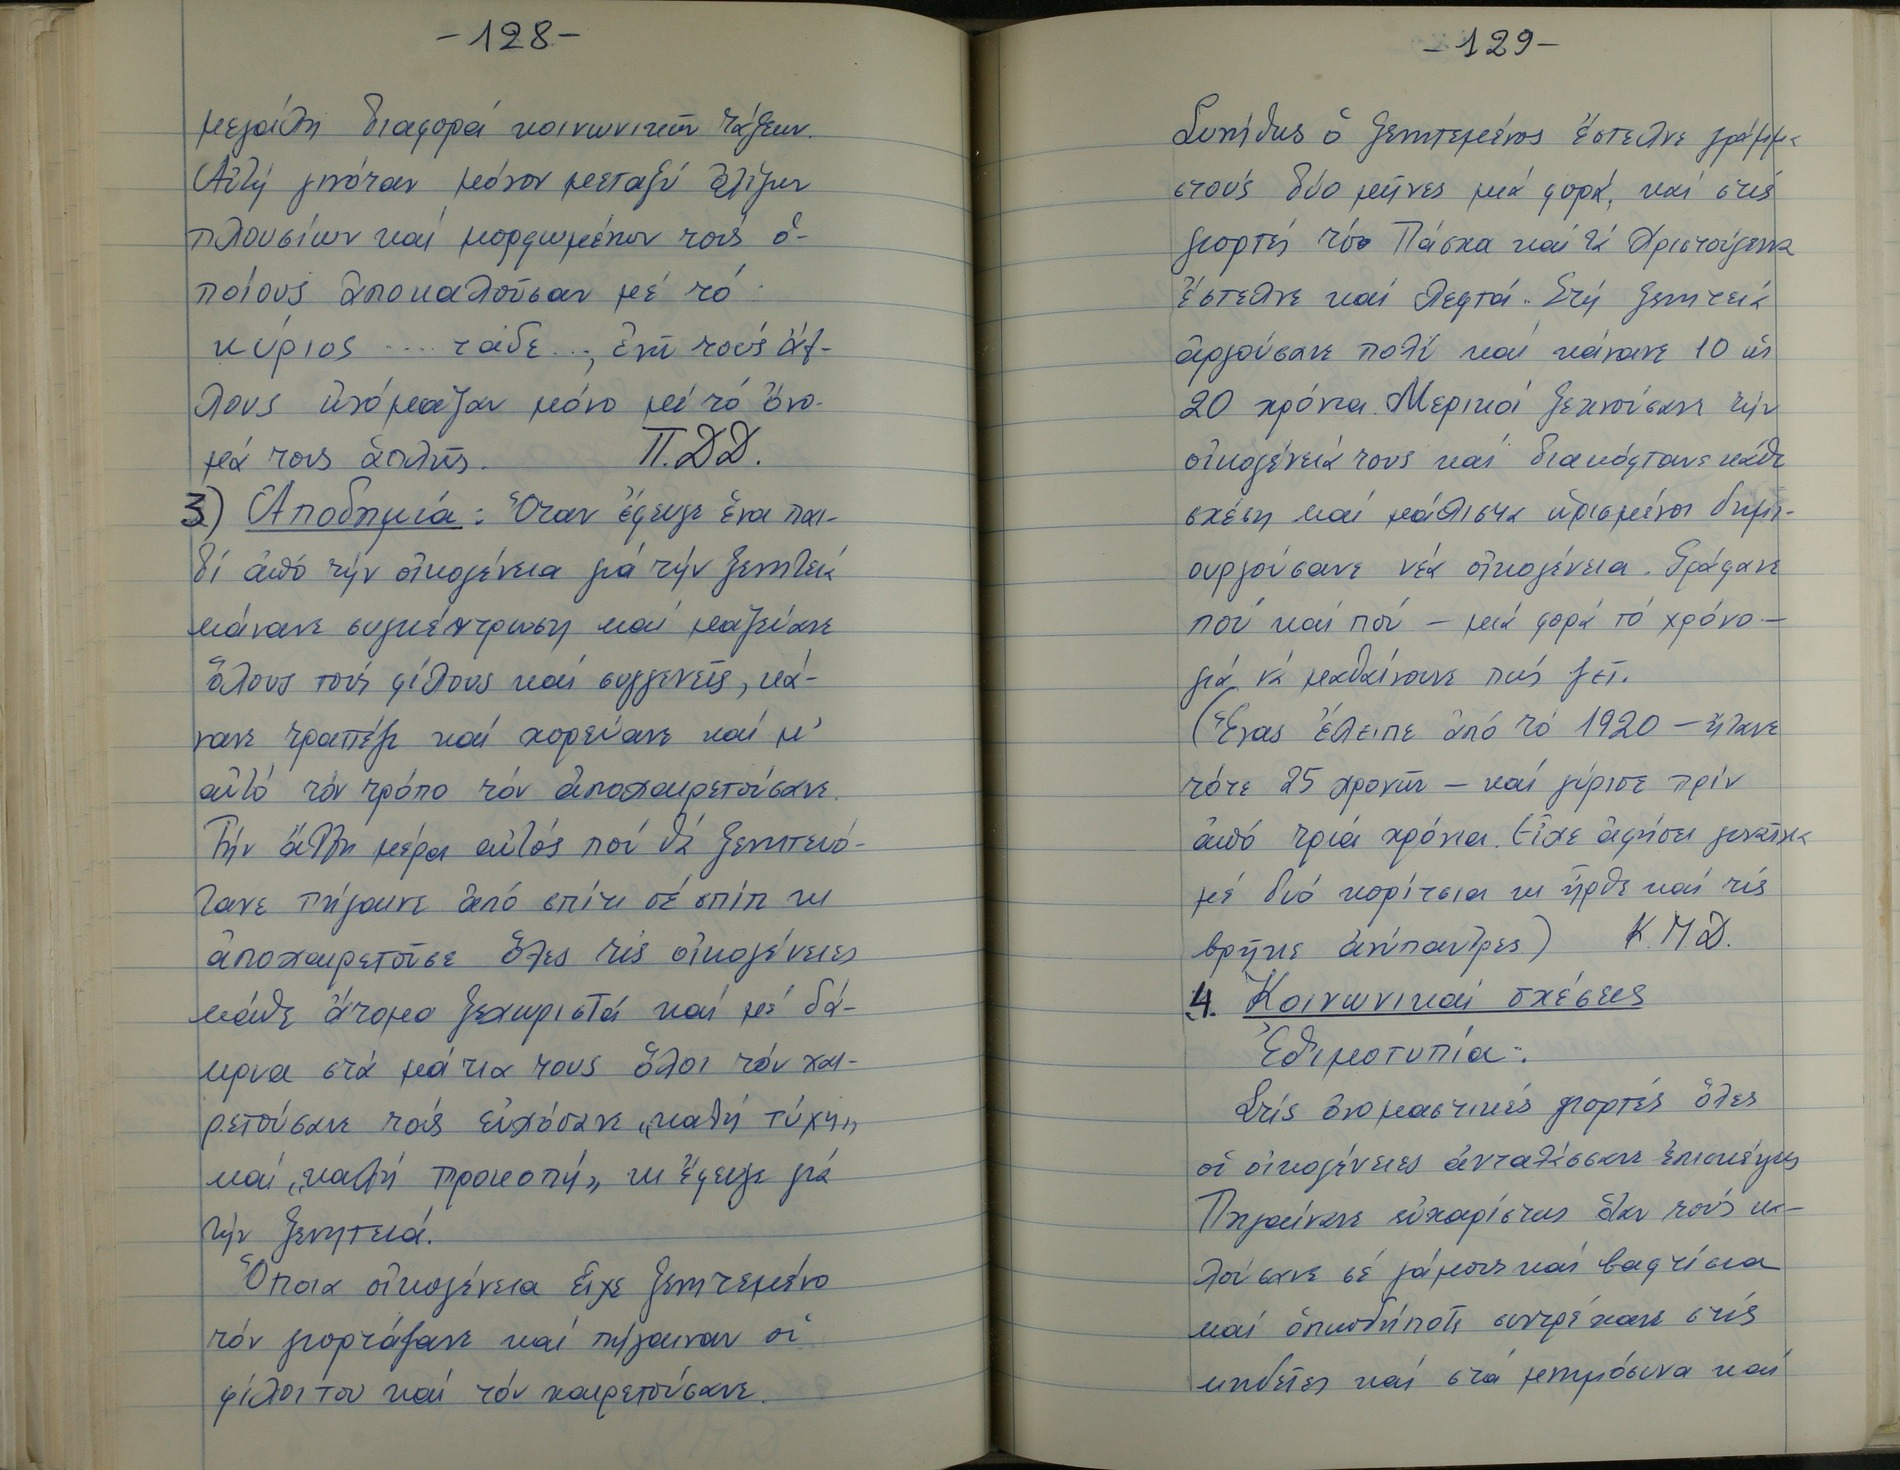 -128-
μεγάλη διαφορά κοινωνικῶν τάξεων.
Αὐτή γινόταν μόνον μεταξύ ὀλίγων
πλουσίων καί μορφωμένων τούς ὁ-
ποίους ἀποκαλοῦσαν μέ τό
κύριος .... τάδε..., ἐνῶ τούς ἄλ-
λους ὠνόμαζαν μόνο μέ τό ὄνο-
μά τους ἁπλῶς. Π.Δ.Δ.
3) Ἀποδημία: Ὅταν ἔφευγε ἕνα παι-
δί ἀπό τήν οἰκογένεια γιά τήν ξενητειά
κάνανε συγκέντρωση καί μαζεύανε
ὅλους τούς φίλους καί συγγενεῖς, κά-
νανε τραπέζι καί χορεύανε καί μ'
αὐτό τόν τρόπο τόν ἀποχαιρετούσανε.
Τήν ἄλλη μέρα αὐτός πού θά ξενητευό-
τανε πήγαινε ἀπό σπίτι σέ σπίτι κι
ἀποχαιρετοῦσε ὅλες τίς οἰκογένειες
κάθε ἄτομο ξεχωριστά καί μέ δά-
κρυα στά μάτια τους ὅλοι τόν χαι-
ρετούσανε τοῦς εὐχόσανε „καλή τύχη„
καί „καλή προκοπή„ κι ἔφευγε γιά
τήν ξενητειά.
Ὅποια οἰκογένεια εἶχε ξενητεμένο
τόν γιορτάζανε καί πήγαιναν οἱ
φίλοι του καί τόν χαιρετούσανε.
-129-
Συνήθως ὁ ξενητεμένος ἔστελνε γράμμα
στούς δύο μῆνες μιά φορά, καί στίς
γιορτές τό Πάσχα καί τά Χριστούγεννα
ἔστελνε καί λεφτά. Στή ξενητειά
ἀργούσανε πολύ καί κάνανε 10 ὡς
20 χρόνια. Μερικοί ξεχνούσανε τήν
οἰκογένειά τους καί διακόφτανε κάθε
σχέση καί μάλιστα ὡρισμένοι δημι-
ουργούσανε νέα οἰκογένεια. Γράφανε
πού καί πού - μιά φορά τό χρόνο -
γιά νά μαθαίνουνε πώς ζεῖ.
(Ἕνας ἔλειπε ἀπό τό 1920 - ἤτανε
τότε 25 χρονῶν - καί γύρισε πρίν
ἀπό τρία χρόνια. Εἶχε ἀφήσει γυναῖκα
μέ δυό κορίτσια κι ἦρθε καί τίς
βρῆκε ἀνύπαντρες) Κ.Μ.Δ.
4. Κοινωνικαί σχέσεις
Ἐθιμοτυπία:.
Στίς ὀνομαστικές γιορτές ὅλες
οἱ οἰκογένειες ἀνταλάσσανε ἐπισκέψεις
Πηγαίνανε εὐχαρίστως ὅταν τούς κα-
λούσανε σέ γάμους καί βαφτίσια
καί ὁπωσδήποτε συντρέχανε στίς
κηδεῖες καί στά μνημόσυνα καί